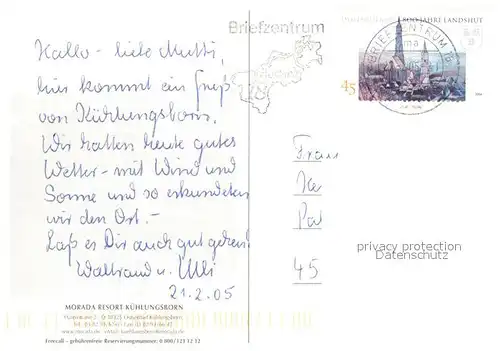 Hallo - liebe Mutti,
hier kommt ein Gruß
von Kühlungsborn.
Wir hatten heute gutes
Wetter - mit Wind und
Sonne und so erkundeten
wir den Ort. -
Laß es Dir auch gut gehen!
Waltraud u. Ulli
21.2.05
MORADA RESORT KÜHLUNGSBORN
Freecall - gebührenfreie Reservierungsnummer: 0 800/123 12 12
Briefzentrum
800 JAHRE LANDSHUT
BRIEFZENTRUM
45
Frau
45
privacy protection
Datenschutz